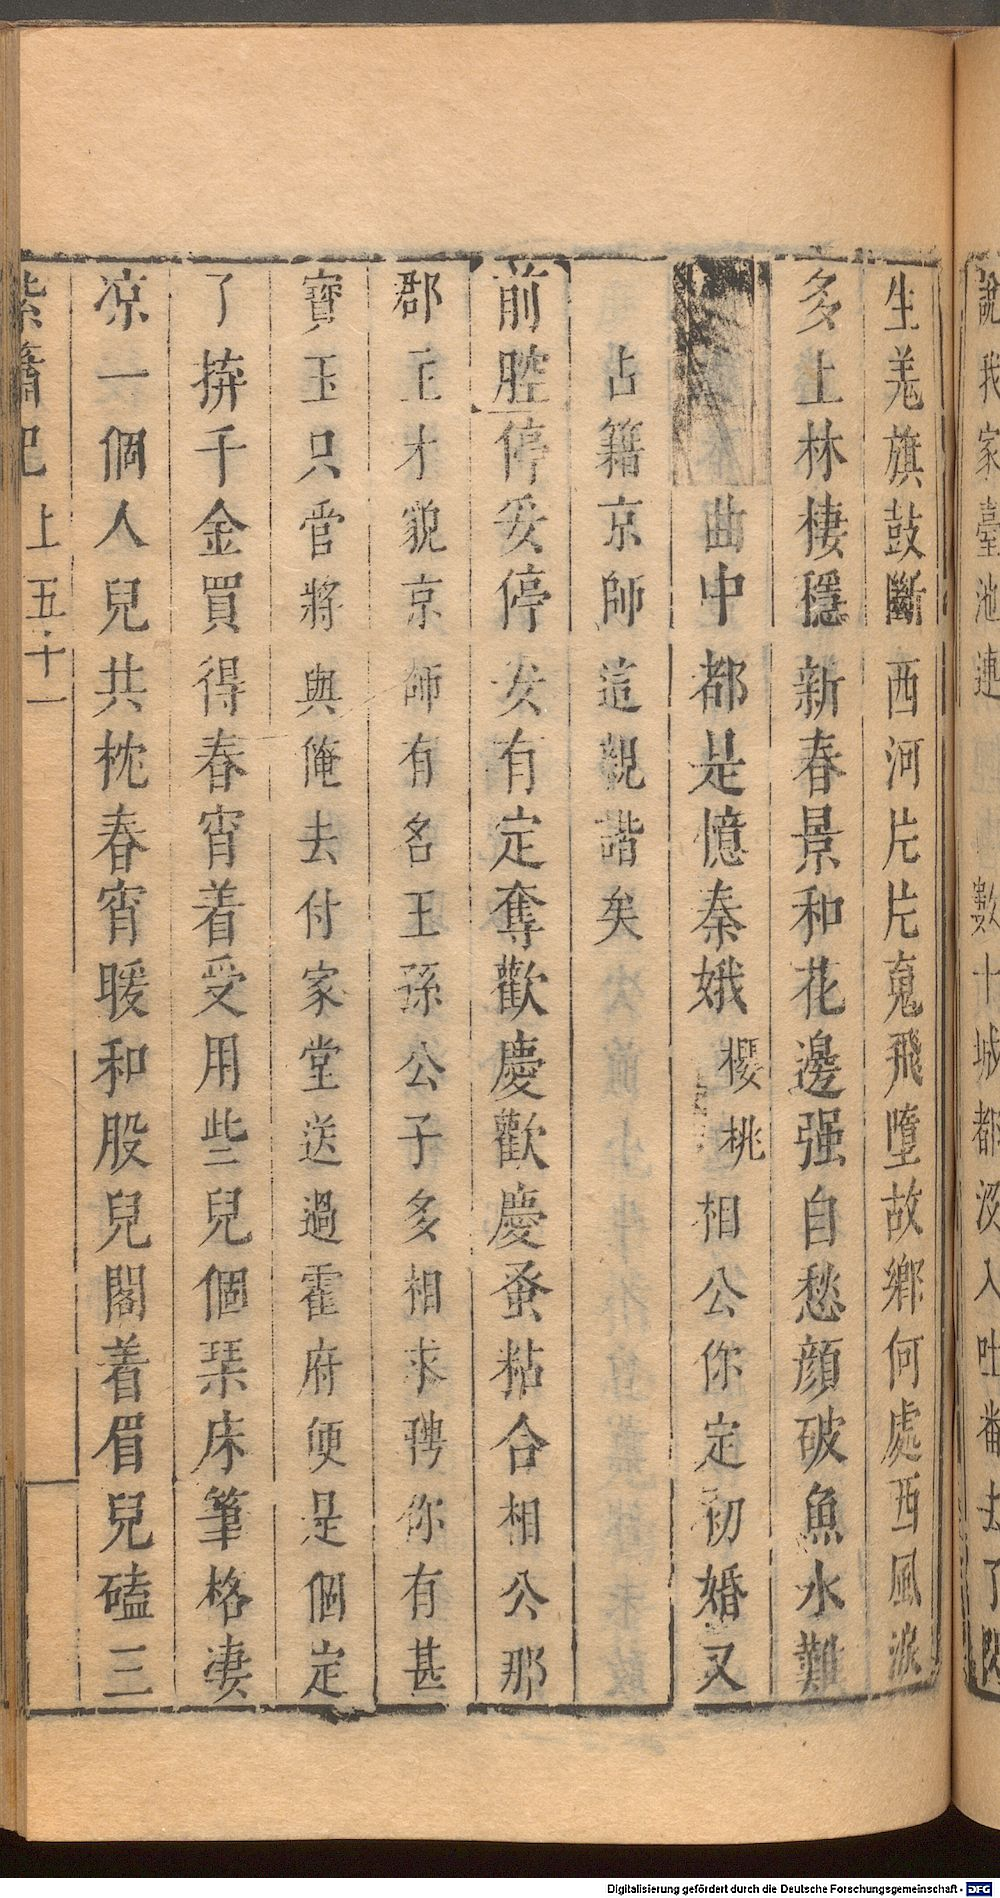 說我家臺池連數十城都沒入吐番去了
生羗旗鼓斷西河片片䰟飛墮故鄉何處西風淚
多上林棲穩新春景和花邊强自愁顔破魚水難
曲中都是憶秦娥櫻桃相公你定初婚又
占籍京師這親諧矣
前腔停妥停妥有定奪歡慶歡慶蚤粘合相公那
郡王才貌京師有名王孫公子多相求聘你有甚
寳玉只管將與俺去付家堂送過霍府便是個定
了拚千金買得春宵着受用些兒個琹床筆格凄
凉一個人兒共枕春宵暖和股兒閣着眉兒磕三
紫簫記 上 五十一
Digitalisierung gefördert durch die Deutsche Forschungsgemeinschaft - DFG